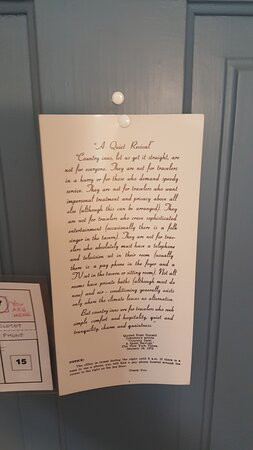 "A Quiet Revival"
"Country inns, let us get it straight, are
not for everyone. They are not for travelers
in a hurry or for those who demand speedy
service. They are not for travelers who want
impersonal treatment and privacy above all
else (although this can be arranged). They
are not for travelers who crave sophisticated
entertainment (occasionally there is a folk
singer in the tavern). They are not for trav-
elers who absolutely must have a telephone
and television set in their room (usually
there is a pay phone in the foyer and a
TV set in the tavern or sitting room). Not all
rooms have private baths (although most do
now) and air-conditioning generally exists
only where the climate leaves no alternative.
But country inns are for travelers who seek
simple comfort and hospitality, quiet and
tranquility, charm and quaintness.
Country Inns
A Quiet Revival
The New York Times
NOTICE:
The office is closed during the night until 8 a.m. If there is a
Thank You
YOU
ARE
HERE
CLOSET
15